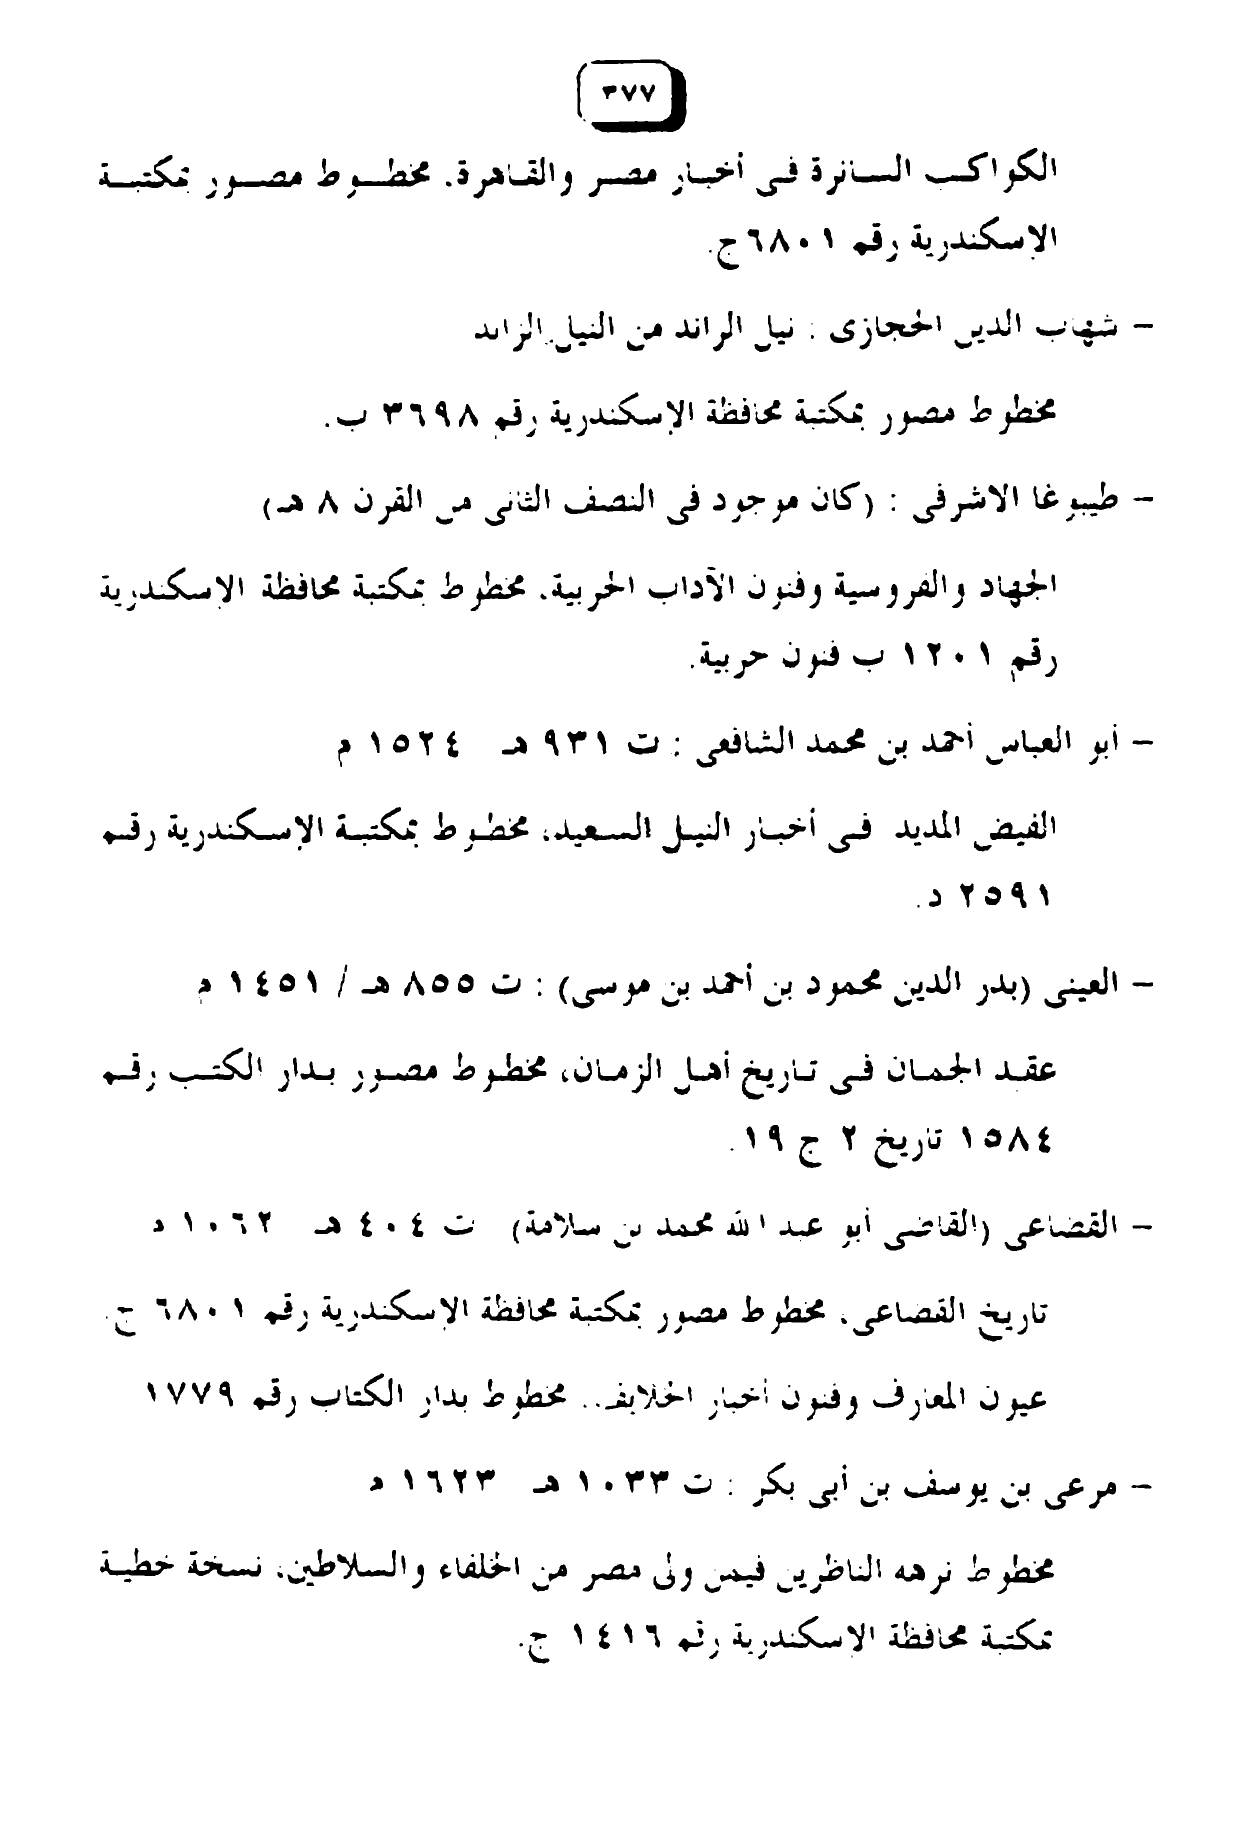 ٣٧٧
الكواكب السائرة فى أخبار مصر والقاهرة. مخطوط مصور بمكتبة
الإسكندرية رقم ٦٨٠١ج.
– شهاب الدين الحجازى : نيل الرائد من النيل الزايد
مخطوط مصور بمكتبة محافظة الإسكندرية رقم ٣٦٩٨ ب.
– طيبوغا الاشرفى : (كان موجود فى النصف الثانى من القرن ٨ هـ)
الجهاد والفروسية وفنون الآداب الحربية. مخطوط بمكتبة محافظة الإسكندرية
رقم ١٢٠١ ب فنون حربية.
– أبو العباس أحمد بن محمد الشافعى : ت ٩٣١ هـ ١٥٢٤ م
الفيض المديد فى أخبار النيل السعيد، مخطوط بمكتبة الإسكندرية رقم
٢٥٩١ د.
– العينى (بدر الدين محمود بن أحمد بن موسى) : ت ٨٥٥ هـ / ١٤٥١ م
عقد الجمان فى تاريخ أهل الزمان، مخطوط مصور بدار الكتب رقم
١٥٨٤ تاريخ ٢ ج ١٩.
– القضاعى (القاضى أبو عبد الله محمد بن سلامة) ت ٤٠٤ هـ ١٠٦٢ م
تاريخ القضاعى، مخطوط مصور بمكتبة محافظة الإسكندرية رقم ٦٨٠١ ج.
عيون المعارف وفنون أخبار الخلايف.. مخطوط بدار الكتاب رقم ١٧٧٩
– مرعى بن يوسف بن أبى بكر : ت ١٠٣٣ هـ ١٦٢٣ م
مخطوط نزهه الناظرين فيمن ولى مصر من الخلفاء والسلاطين، نسخة خطية
بمكتبة محافظة الإسكندرية رقم ١٤١٦ ج.